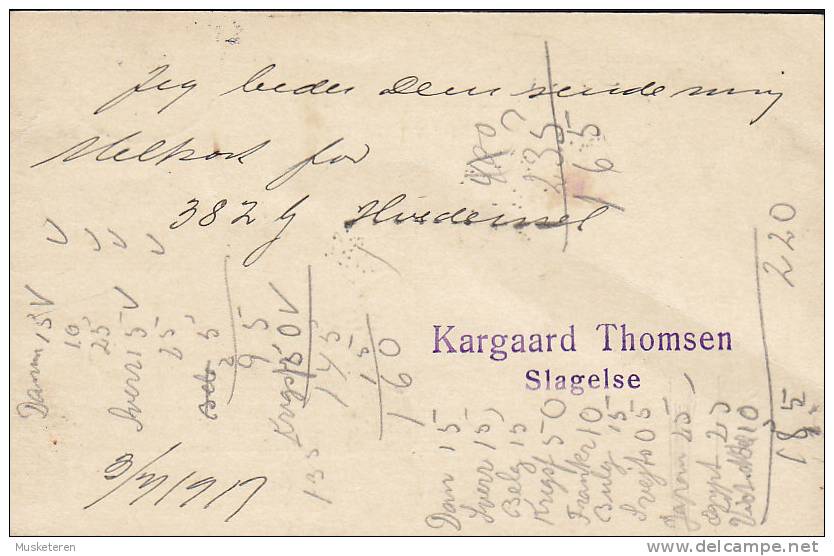 Jeg beder Dem sende mig
Melkort for
382 g Hvedemel
Kargaard Thomsen
Slagelse
3/7 1917
480
235
165
15 V
10
25
15 V
25
5
95
50 V
145
15
160
135
Dan 15
Sverr 15
Belg 15
Krigsf 50
Frankr 10
Bulg 15
05
Japan 25
Egypt 25
10
185
220
Musketeren
www.delcampe.net